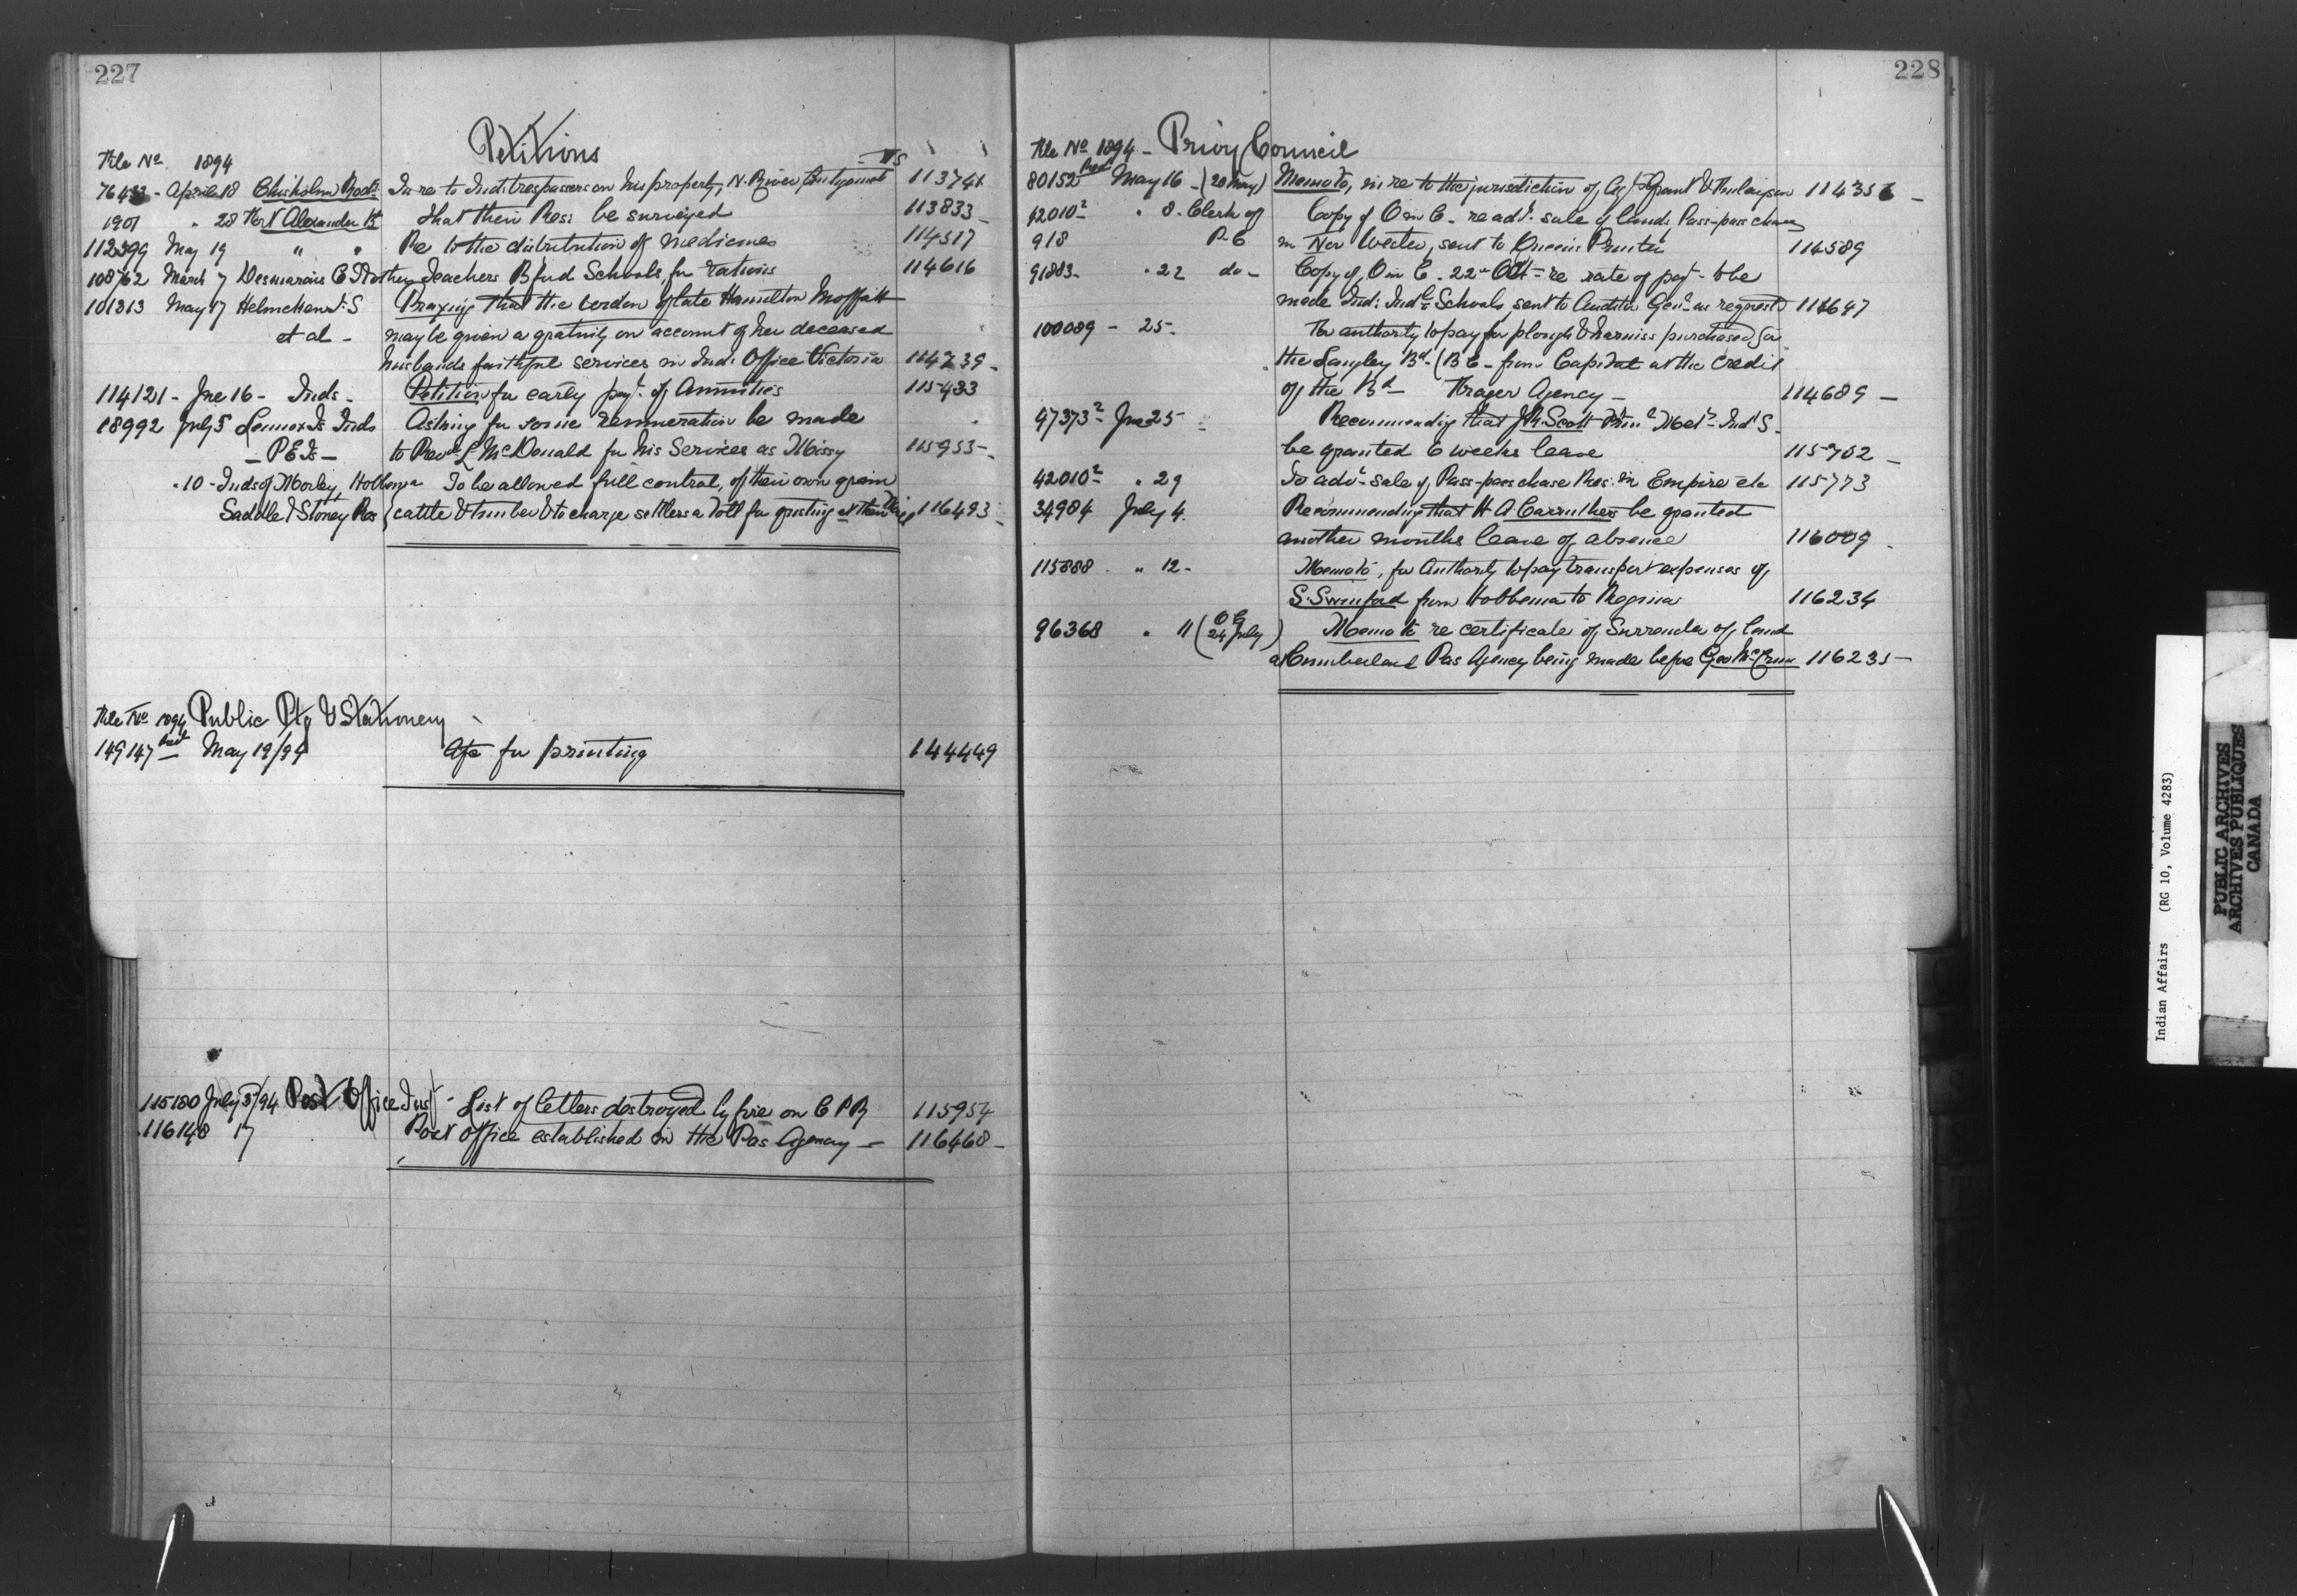 227
Petitions
File No 1894
Vs
76433 - April 18 Chisholm Rod. In re to Ind: trespassers on his property, N. River, Antigonish 113741
1907 " 28 Fort Alexander Bd That their Res: be surveyed 113833 -
112399 May 19 " " Re to the distribution of medicines 114517
108762 March 7 Desmarais E T & other Teachers Bfud Schools, for rations 114616
101313 May 17 Helmcken J. S Praying that the of late Hamilton Moffatt
et al - may be given a gratuity on account of her deceased
husbands faithful services in Ind: Office Victoria 114739 -
114121 - Jne 16 - Inds - Petition for early payt. of Annuities 115433
18992 July 5 Lennox Is Inds Asking for some remuneration be made
- P E Is - to Revd L McDonald for his Services as Missy 115955 -
" 10 - Inds of Morley, Hobbema To be allowed full control, of their own grain
Saddle & Stoney Res cattle & timber & to charge settlers a toll for gristing at their 116493 -
File No 1894 Public Ptg & Stationery
149147 May 19/94 A/c for printing 144449
115180 July 5/94 Post Office Insp - List of letters destroyed by fire on C P Ry 115954
116148 17 Post office established in the Pas Agency - 116468 -
228
File No 1894 - Privy Council
80152 Red May 16 - (20 May) Memoto, in re to the jurisdiction of Agts Grant & Finlayson 114356 -
42010² " 8 - Clerk of Copy of O in C - re advt. sale of lands, Pass-pass chase
918 P. C in Nor Wester, sent to Queens Printer 114589
91883 - " 22 do - Copy of O in C - 22d Oct - re rate of payt - to be
made Ind: Indl Schools, sent to Auditor Genl as requested 114647
100089 - 25 - For authority to pay for plough & harniss purchased for
the Langley Bd - (B C - from Capital at the credit
of the Bd - Fraser Agency - 114689 -
47373² - Jne 25 - Recommending that J. R. Scott Prin. Met. Indl S.
be granted 6 weeks leave 115702 -
42010² - " 29 To advt - sale of Pass-pass chase Res: in Empire etc 115773
34984 July 4. Recommending that H A Carruthers be granted
another months leave of absence 116009 -
115888 . " 12 - Memoto, for Authority to pay transport expenses of
S. Swinford from Hobbema to Regina 116234
96368 " 11 (O C 24 July) Memoto re certificate of Surrender of land
at Cumberland Pas Agency being made before Geo McCrum 116235 -
Indian Affairs (RG 10, Volume 4283)
PUBLIC ARCHIVES
ARCHIVES PUBLIQUES
CANADA